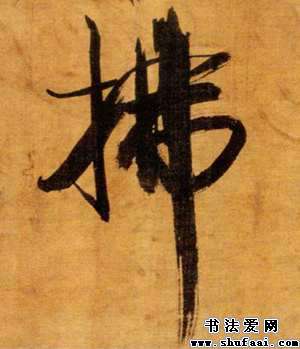 拂
书法爱网
www.shufaai.com